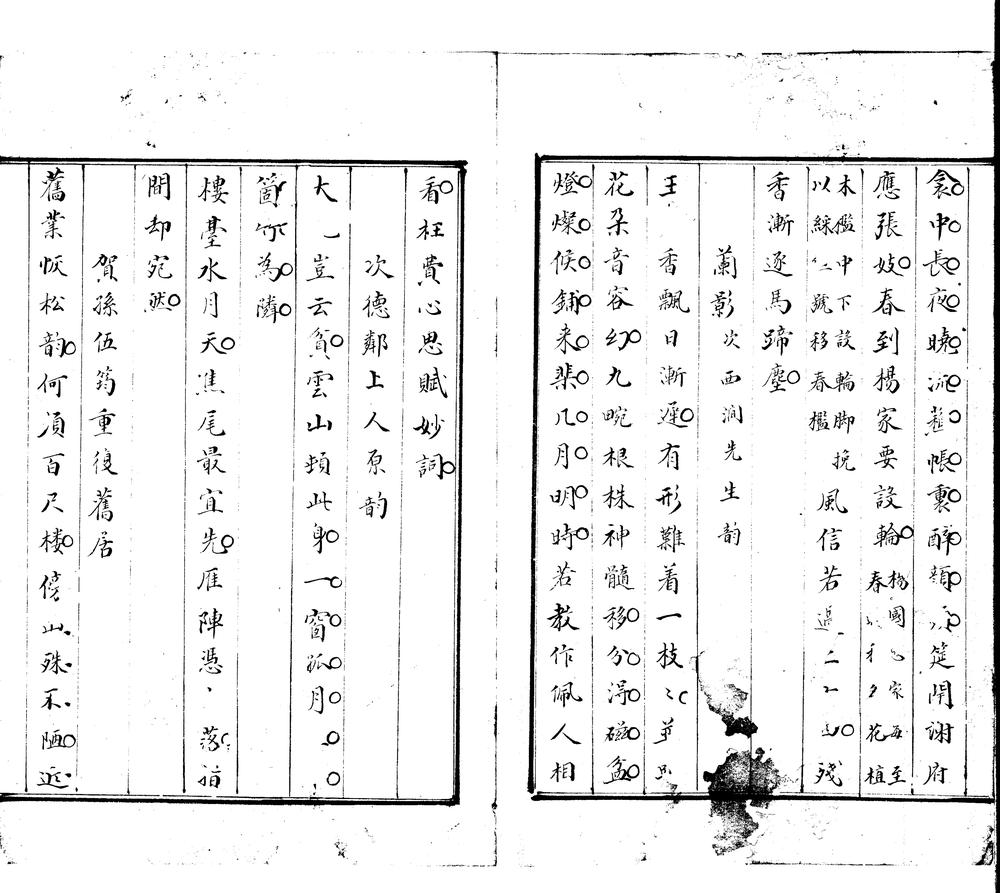 衾中長夜曉流蘇帳裏醉顔筵開謝府
應張妓春到楊家要設輪楊國家每至春花植
木檻中下設輪脚挽以綵號移春檻風信若過二殘
香漸逐馬蹄塵
蘭影次西澗先生韵
王香飄日漸遲有形難着一枝
花朵音容幻九畹根株神髓移分得磁盆
燈燦候鋪来棐几月明時若教作佩人相
看枉費心思賦妙詞
次德鄰上人原韵
大豈云貧雲山頓此身一窗孤月
箇竹為隣
樓臺水月天焦尾最宜先雁陣憑落指
間却宛然
賀孫伍筠重復舊居
舊業恢松韵何須百尺樓傍山殊不陋近